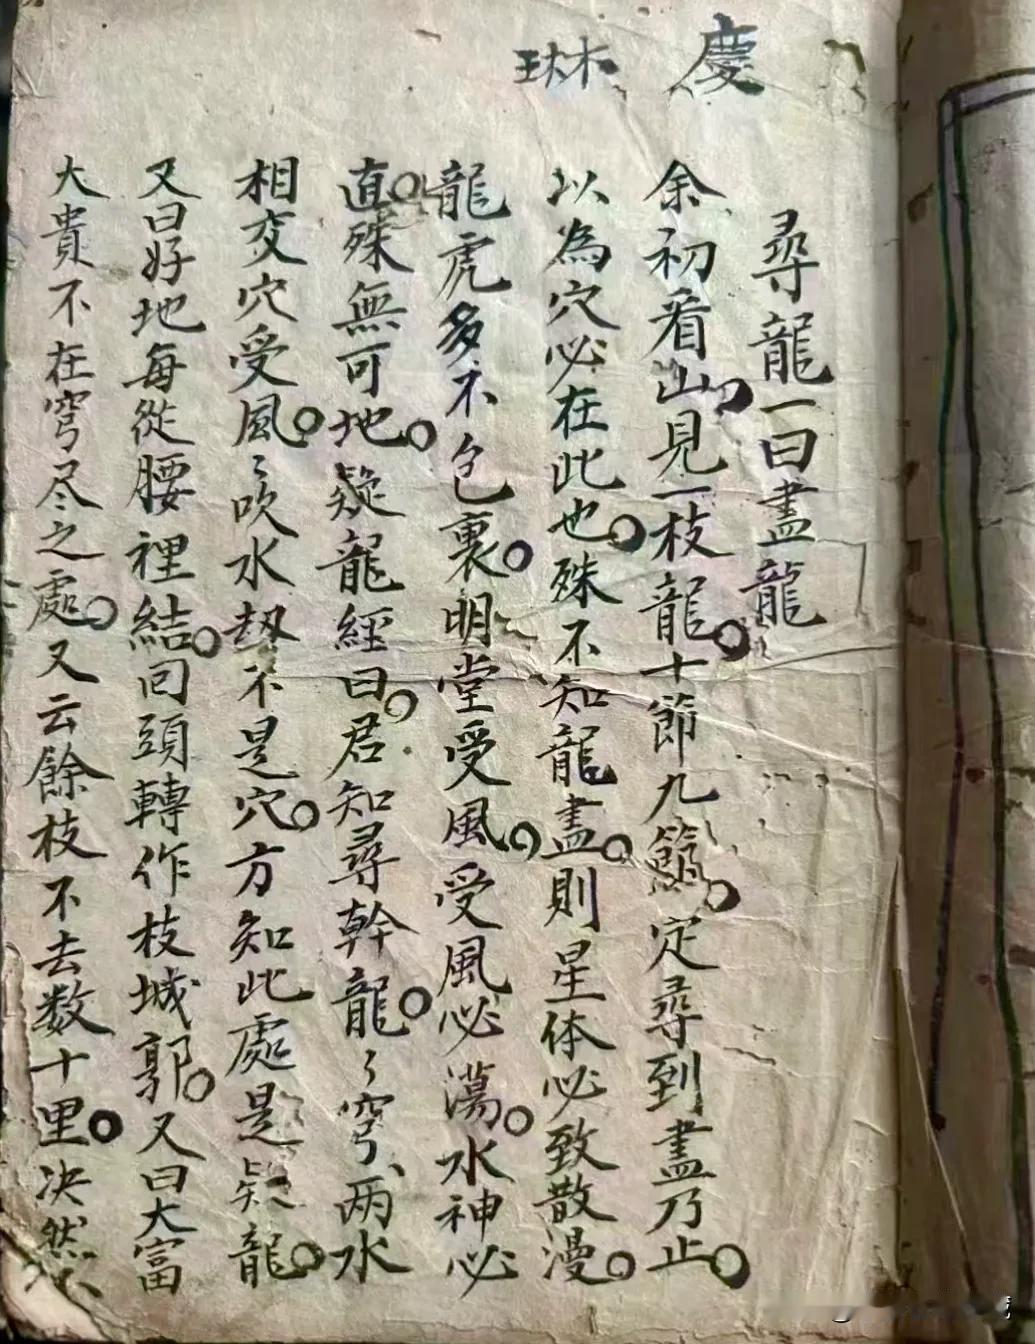 慶琳
尋龍一曰盡龍
余初看山見一枝龍。十節九
定尋到盡乃止。
以為穴必在此也。殊不知龍盡。則星体必致散漫。
龍虎多不包裹。明堂受風。受風必蕩。水神必
直。殊無可地。疑龍經曰。君知尋幹龍。〻窮、兩水
相交穴受風。〻吹水劫不是穴。方知此處是疑龍。
又曰好地每從腰裡結。回頭轉作枝城郭。又曰大富
大貴不在窮尽之處。又云餘枝不去数十里。决然